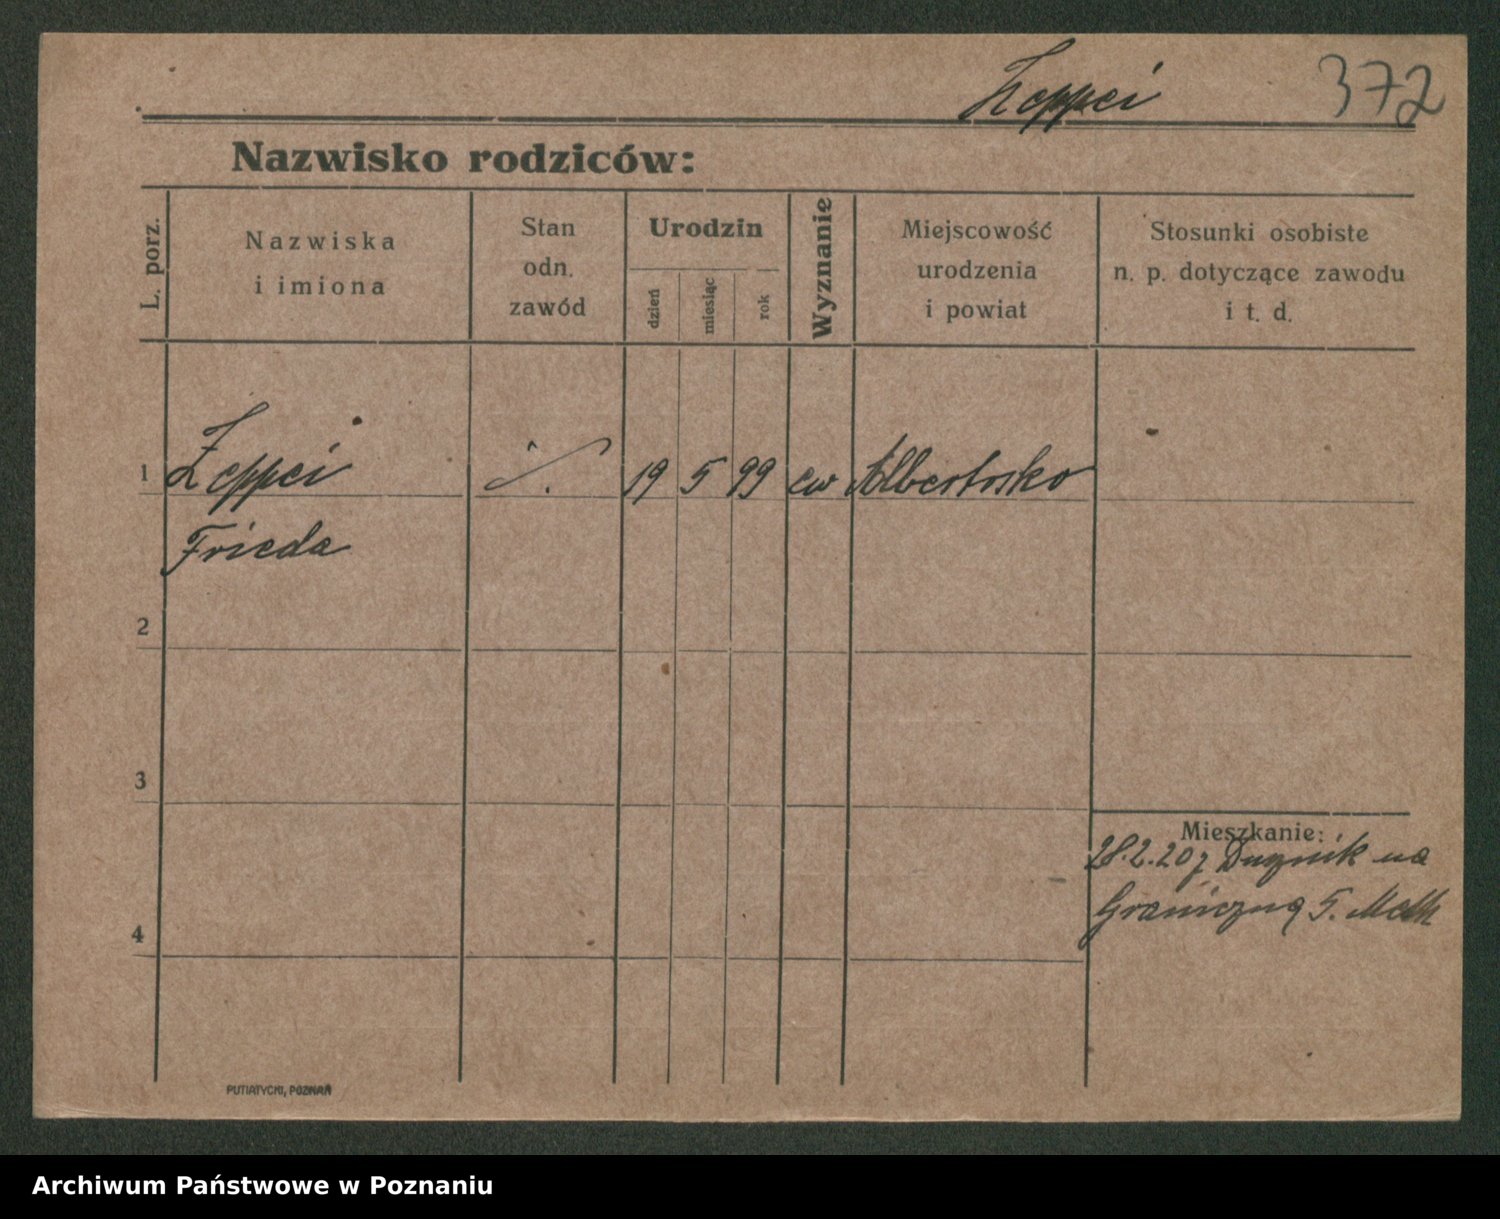 Zeppei 372
Nazwisko rodziców:
L. porz.
Nazwiska
i imiona
Stan
odn.
zawód
Urodzin
dzień
miesiąc
rok
Wyznanie
Miejscowość
urodzenia
i powiat
Stosunki osobiste
n. p. dotyczące zawodu
i t. d.
1 Zeppei 19 5 99 ew Albertosko
Frieda
2
3
Mieszkanie:
28.2.20 z na
Graniczną 5.
4
PUTIATYCKI, POZNAŃ
Archiwum Państwowe w Poznaniu